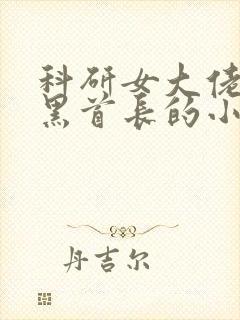 科研女大佬
黑首长的小
丹吉尔